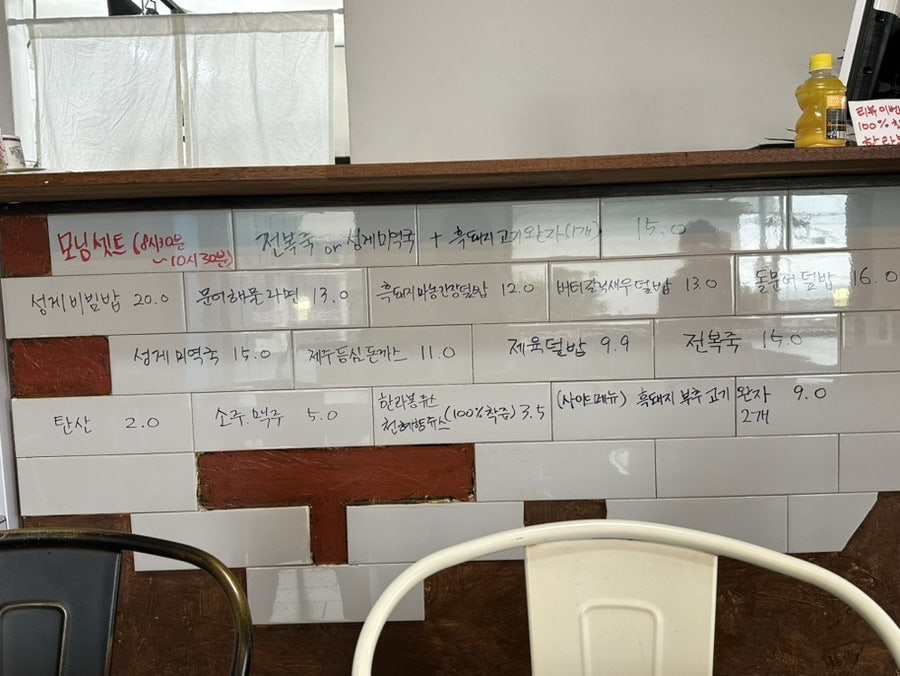 리뷰이벤
100% 착
한라봉
모닝셋트 (8시30분
~10시30분)
전복죽 or 성게미역국 + 흑돼지고기완자(1개) 15.0
성게비빔밥 20.0
문어해물라면 13.0
흑돼지마늘간장덮밥 12.0
버터갈릭새우덮밥 13.0
돌문어덮밥 16.0
성게미역국 15.0
제주등심돈까스 11.0
제육덮밥 9.9
전복죽 15.0
탄산 2.0
소주.맥주 5.0
한라봉쥬스
천혜향쥬스(100%착즙) 3.5
(사이드메뉴) 흑돼지 부추고기 완자 9.0
2개